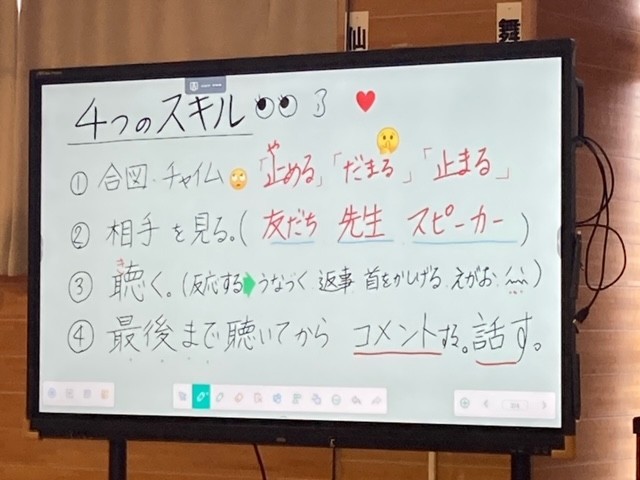 仙
舞
4つのスキル
① 合図・チャイム 「止める」「だまる」「止まる」
② 相手を見る。(友だち 先生 スピーカー)
③ 聴く。(反応する うなづく 返事 首をかしげる えがお)
④ 最後まで聴いてから コメントする。話す。